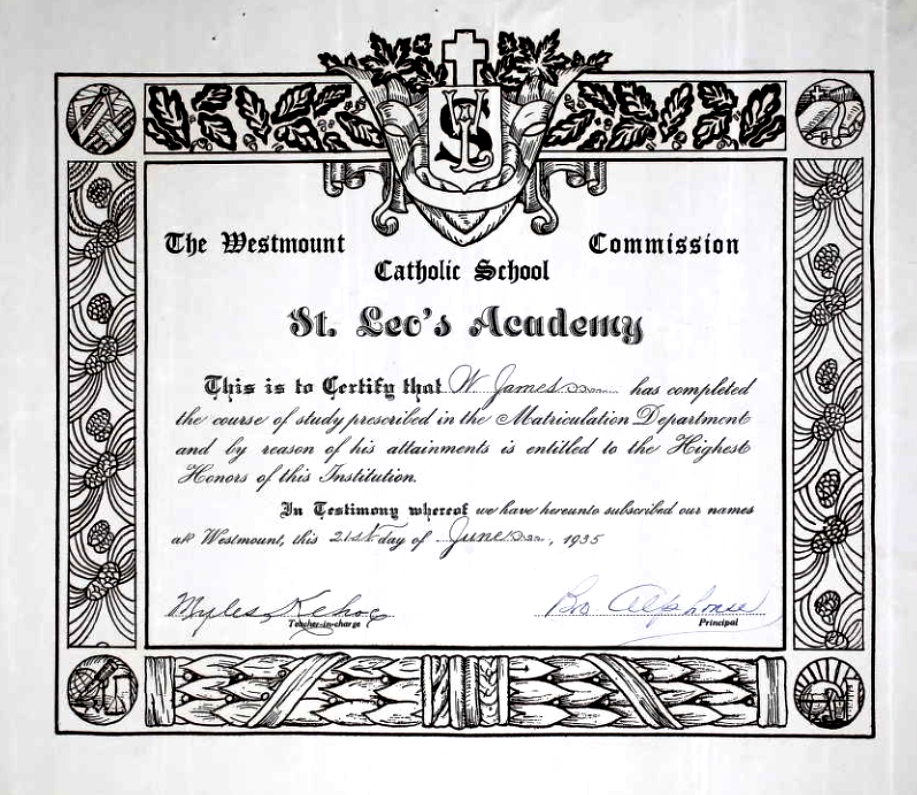 The Westmount Commission
Catholic School
St. Leo's Academy
This is to Certify that W. James has completed
the course of study prescribed in the Matriculation Department
and by reason of his attainments is entitled to the Highest
Honors of this Institution.
In Testimony whereof we have hereunto subscribed our names
at Westmount, this 21st day of June, 1935
Myles Kehoe
Teacher-in-charge
Bro Alphonse
Principal